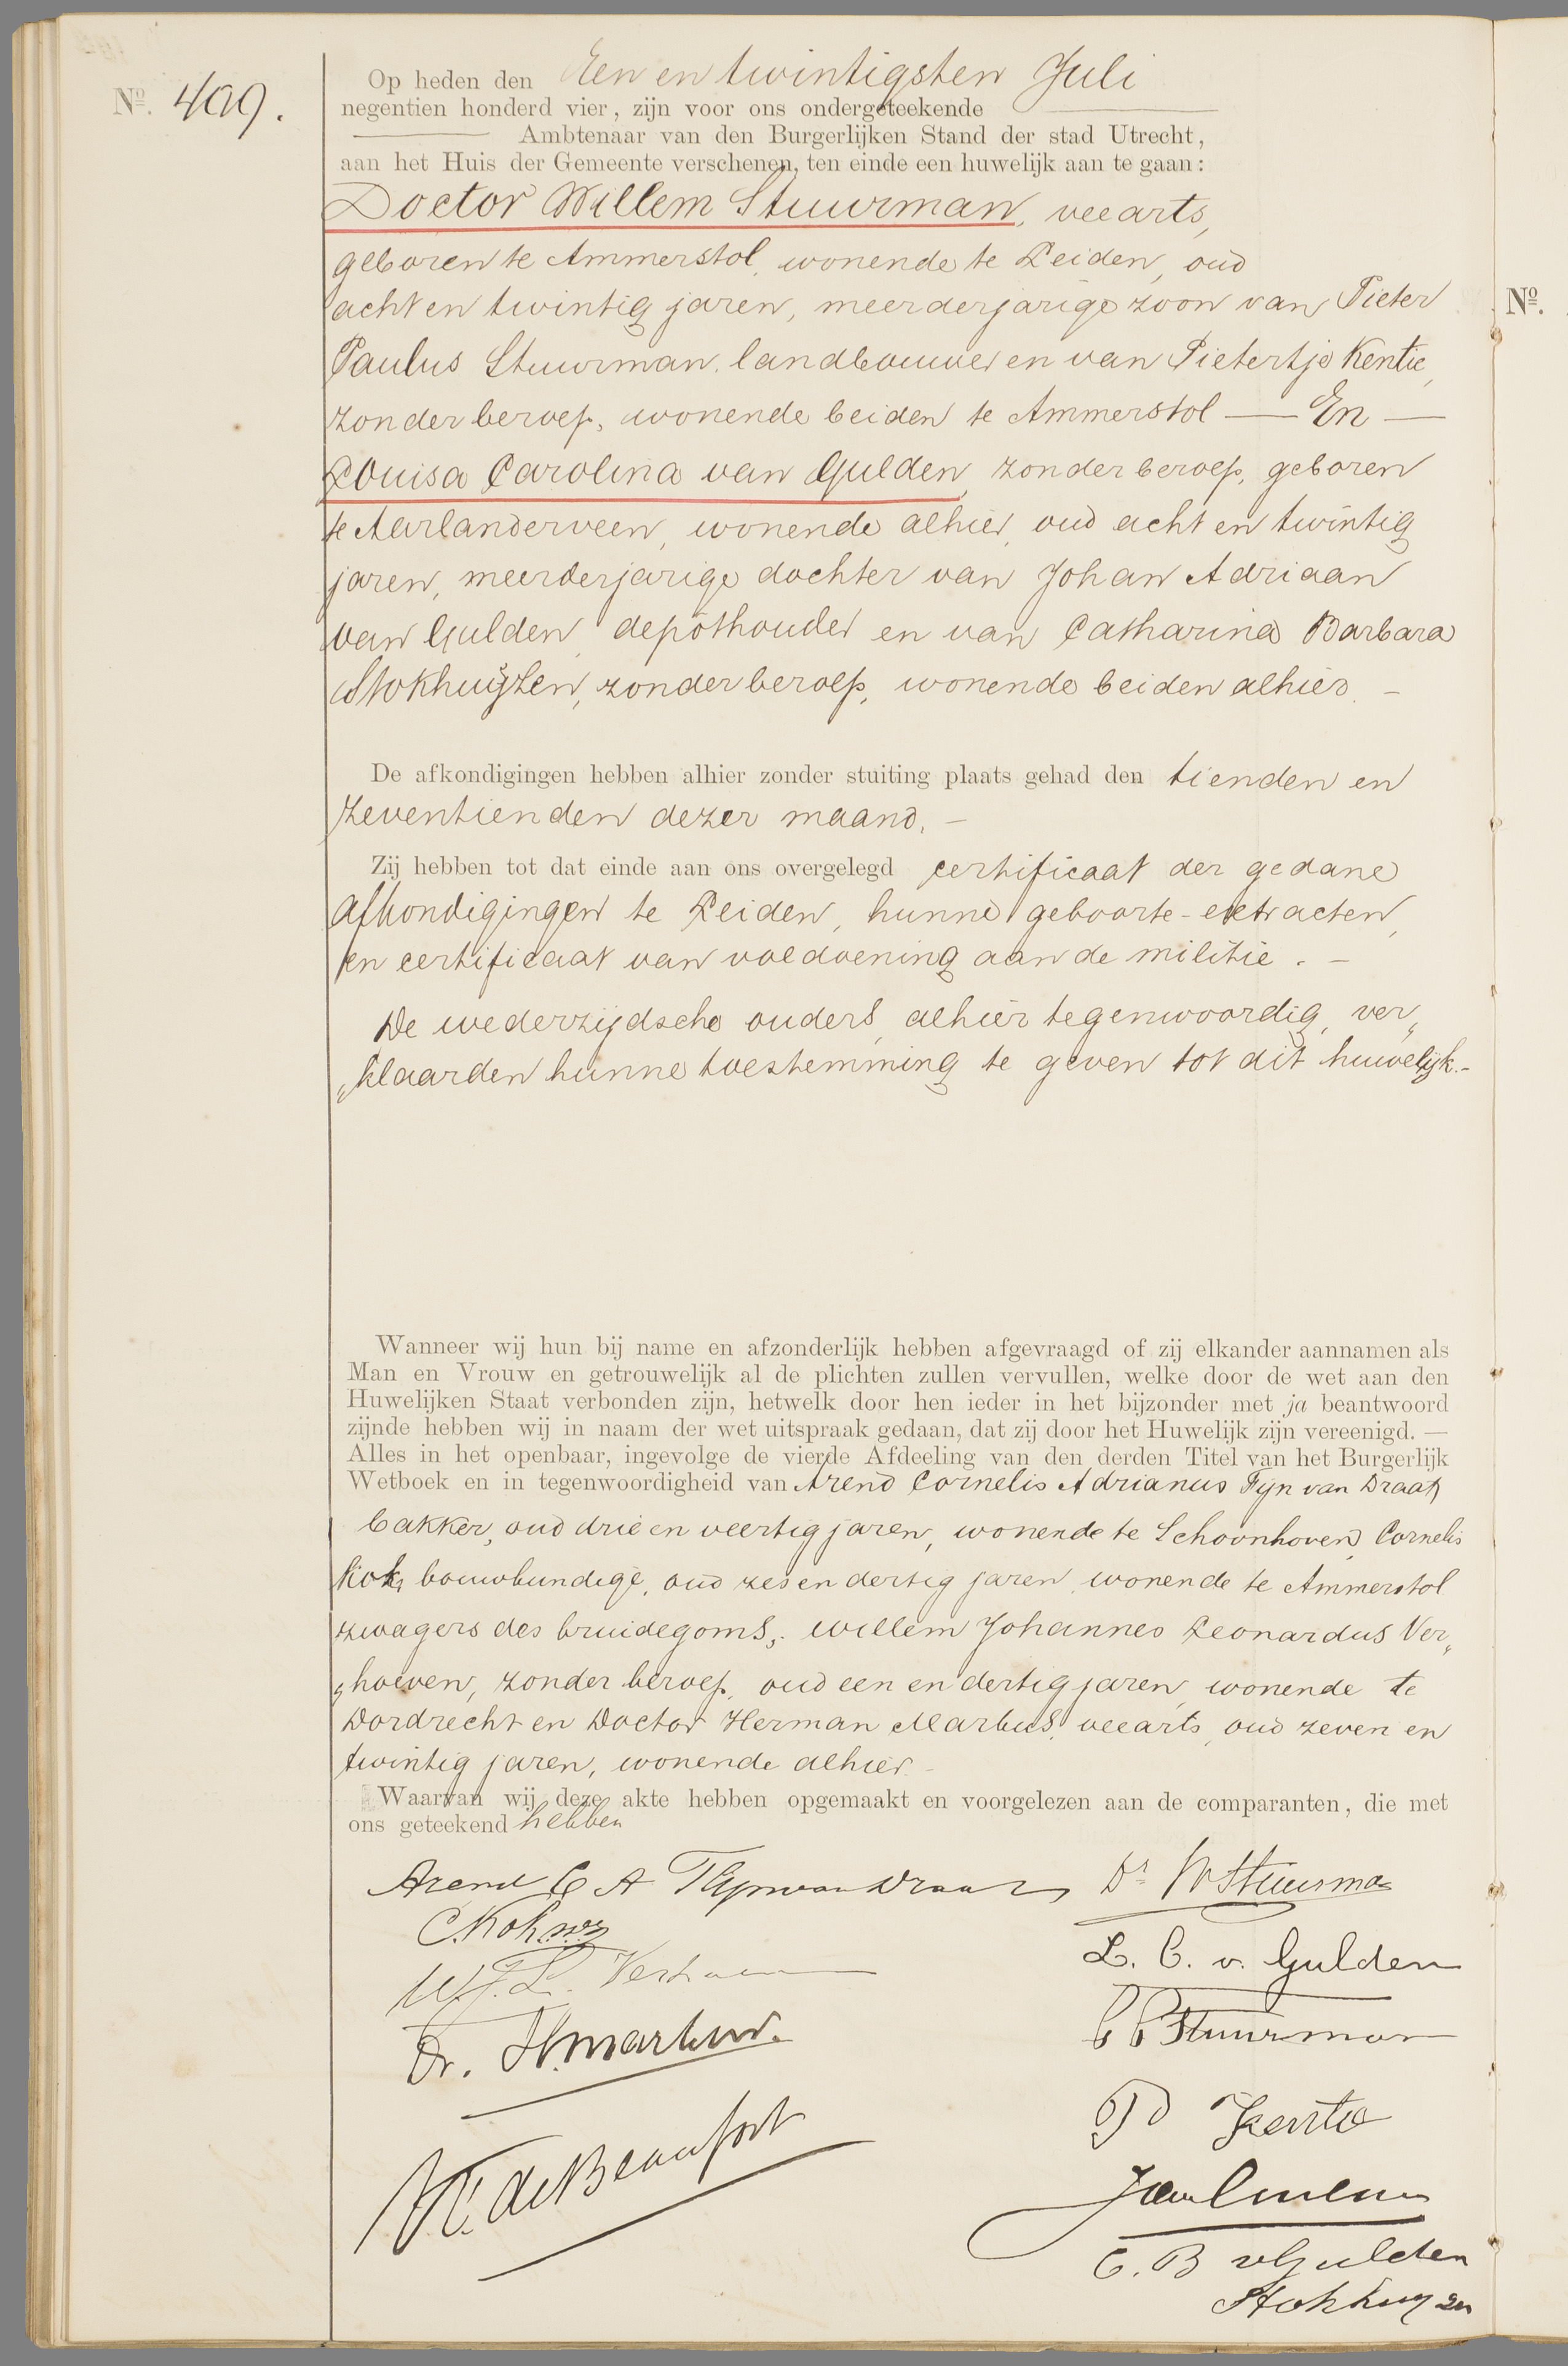 Nº. 409.
Op heden den Een en twintigsten Juli
negentien honderd vier, zijn voor ons ondergeteekende
Ambtenaar van den Burgerlijken Stand der stad Utrecht,
aan het Huis der Gemeente verschenen, ten einde een huwelijk aan te gaan:
Doctor Willem Stuurman, veearts,
geboren te Ammerstol, wonende te Leiden, oud
acht en twintig jaren, meerderjarige zoon van Pieter
Paulus Stuurman, landbouwer en van Pietertje Kentie,
zonder beroep, wonende beiden te Ammerstol — En —
Louisa Carolina van Gulden, zonder beroep, geboren
te Aarlanderveen, wonende alhier, oud acht en twintig
jaren, meerderjarige dochter van Johan Adriaan
van Gulden, depôthouder en van Catharina Barbara
Stokhuijzen, zonder beroep, wonende beiden alhier. –
De afkondigingen hebben alhier zonder stuiting plaats gehad den tienden en
zeventienden dezer maand. –
Zij hebben tot dat einde aan ons overgelegd certificaat der gedane
afkondigingen te Leiden, hunne geboorte-extracten,
en certificaat van voldoening aan de militie. –
De wederzijdsche ouders, alhier tegenwoordig, ver„
„klaarden hunne toestemming te geven tot dit huwelijk.–
Wanneer wij hun bij name en afzonderlijk hebben afgevraagd of zij elkander aannamen als
Man en Vrouw en getrouwelijk al de plichten zullen vervullen, welke door de wet aan den
Huwelijken Staat verbonden zijn, hetwelk door hen ieder in het bijzonder met ja beantwoord
zijnde hebben wij in naam der wet uitspraak gedaan, dat zij door het Huwelijk zijn vereenigd. —
Alles in het openbaar, ingevolge de vierde Afdeeling van den derden Titel van het Burgerlijk
Wetboek en in tegenwoordigheid van Arend Cornelis Adrianus Tijn van Draat,
bakker, oud drie en veertig jaren, wonende te Schoonhoven, Cornelis
Kok, bouwkundige, oud zes en dertig jaren, wonende te Ammerstol
zwagers des bruidegoms, Willem Johannes Leonardus Ver„
„hoeven, zonder beroep, oud een en dertig jaren, wonende te
Dordrecht en Doctor Herman Markus, veearts, oud zeven en
twintig jaren, wonende alhier. –
Waarvan wij deze akte hebben opgemaakt en voorgelezen aan de comparanten, die met
ons geteekend hebben
Arend C A Tijn van Draat Dr W Stuurman
C. Kok.
L. C. v. Gulden
W. J. L. Verhoeven
Dr. H. Markus.
P P Stuurman
P Kentie
de Beaufort
C. B v Gulden
Stokhuyzen
Nº.